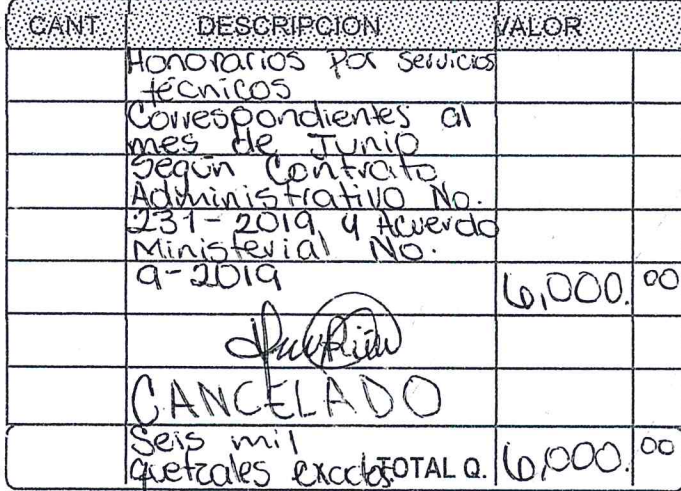 CANT. DESCRIPCION VALOR
Honorarios por servicios
técnicos
Correspondientes al
mes de Junio
Según Contrato
Administrativo No.
231-2019 y Acuerdo
Ministerial No.
9-2019 6,000.00
CANCELADO
Seis mil
quetzales exactos TOTAL Q. 6,000.00